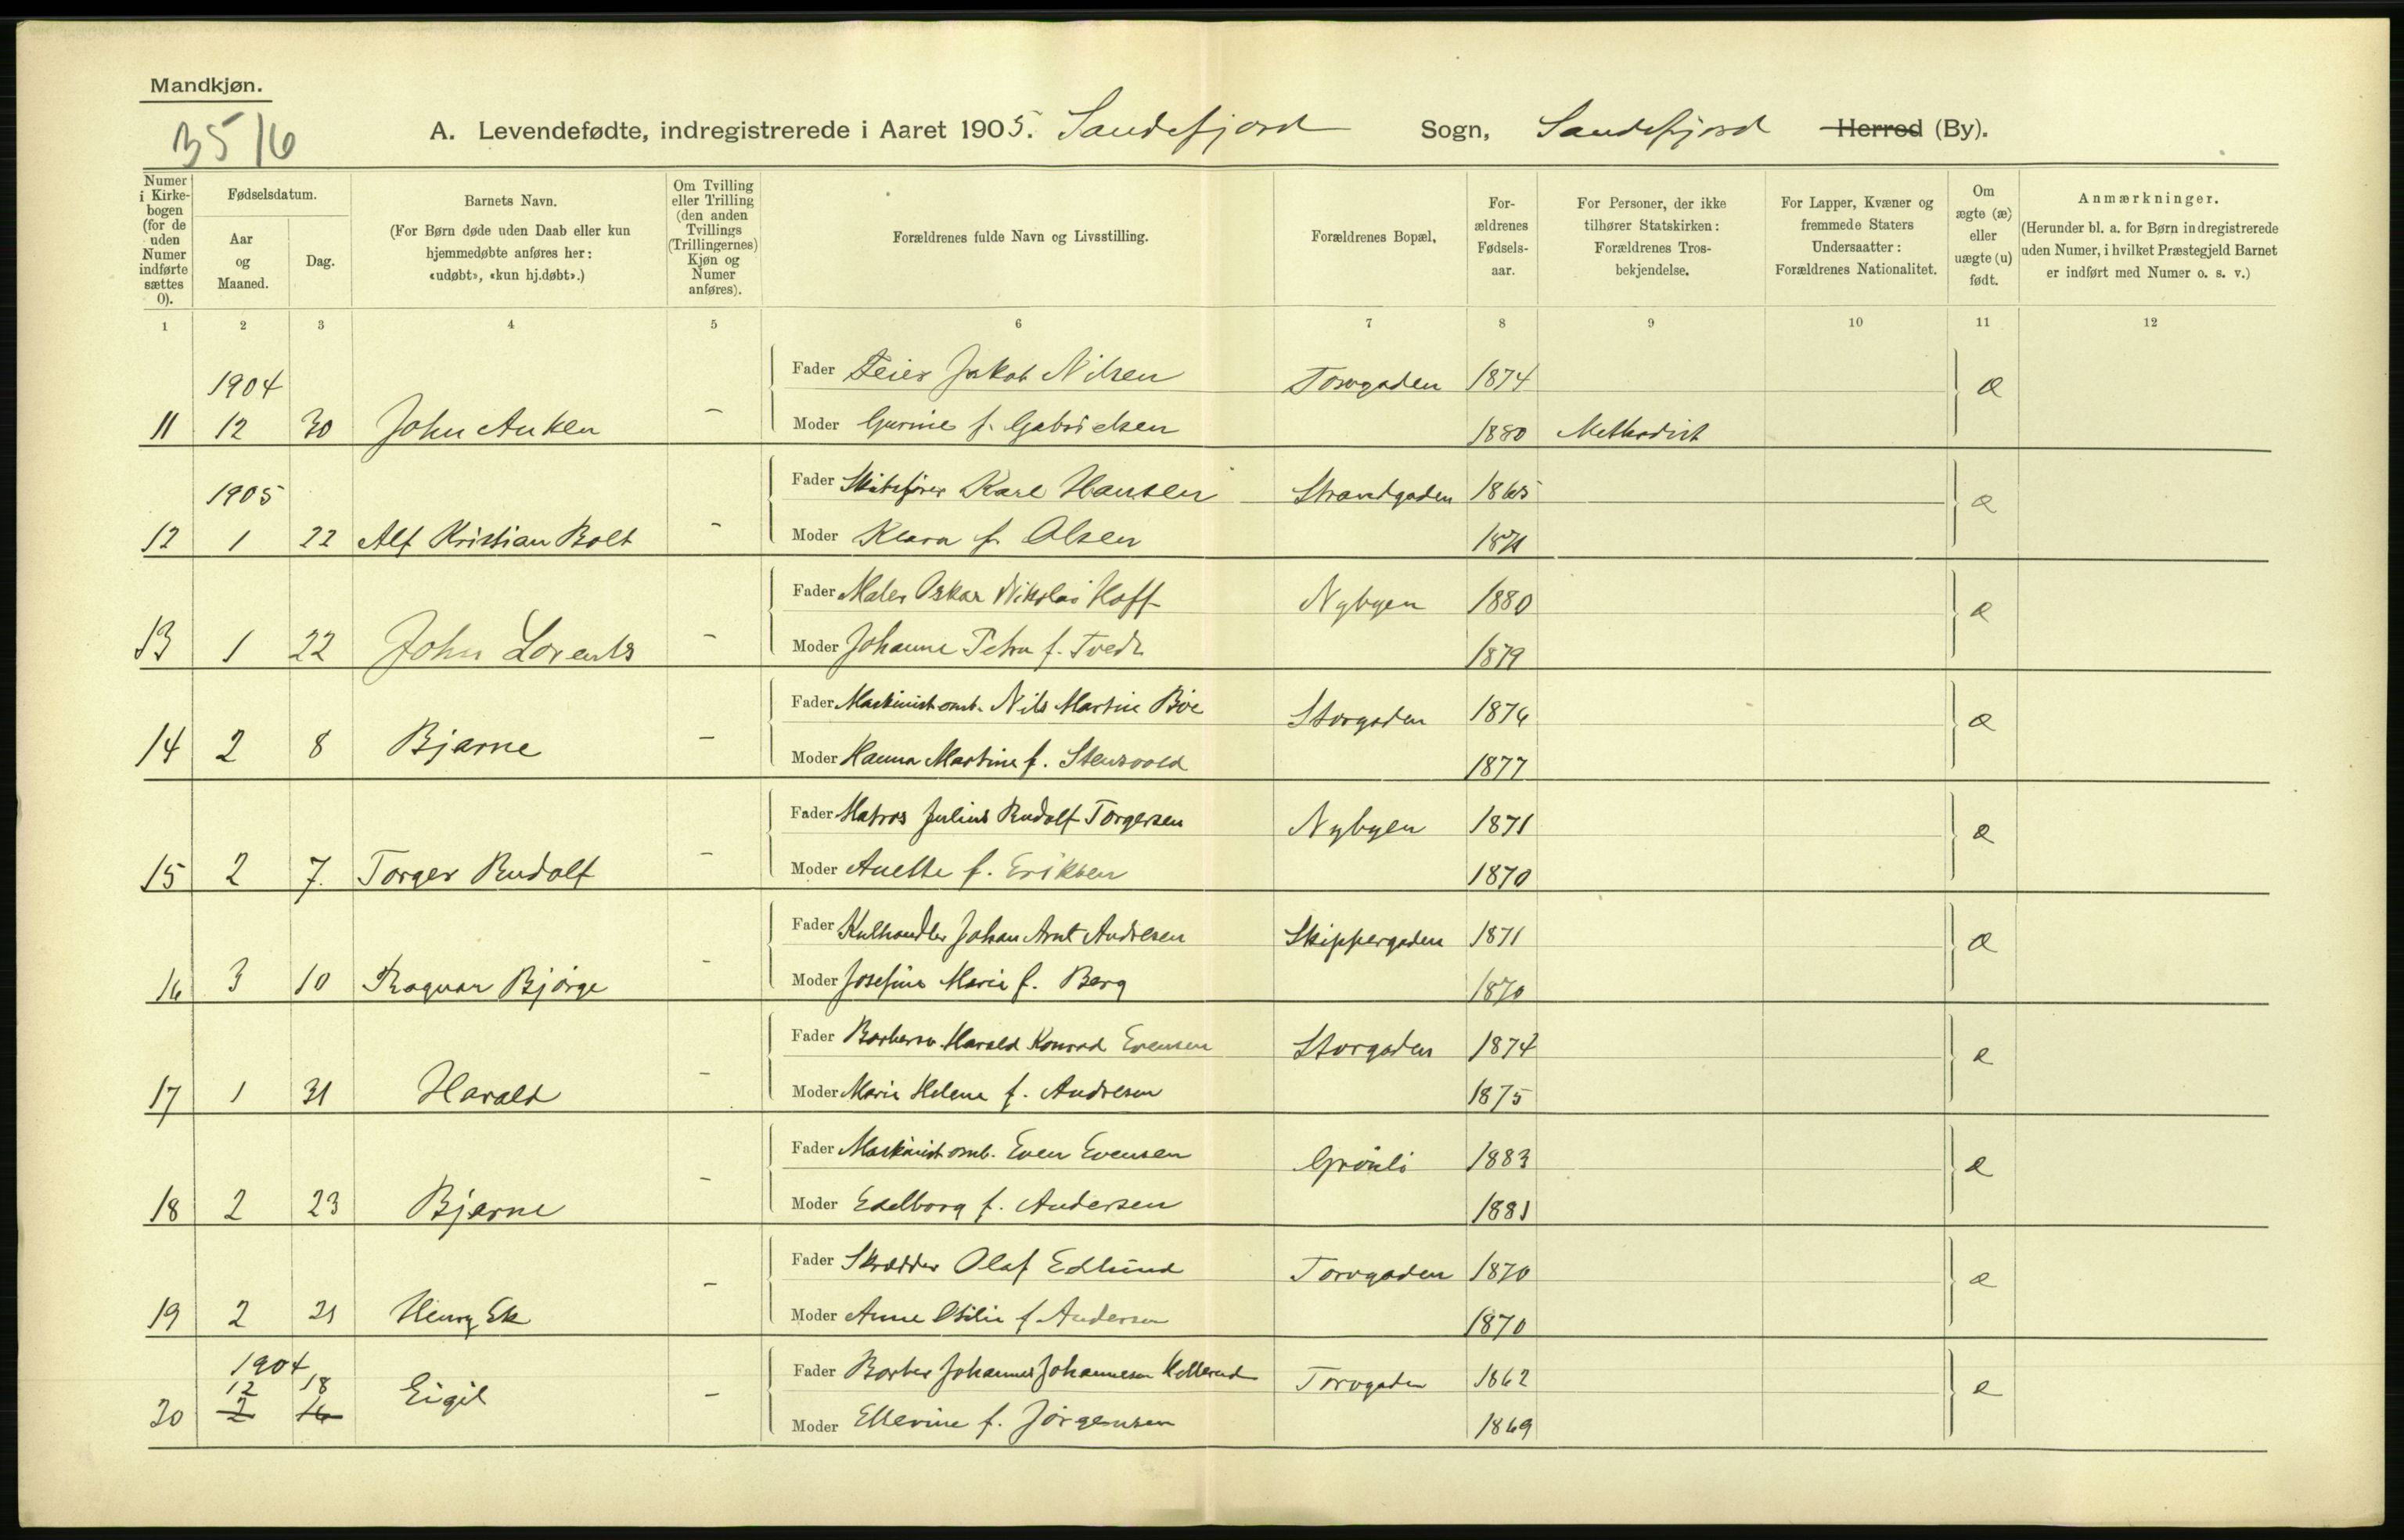 Mandkjøn.
3516
A. Levendefødte, indregistrerede i Aaret 1905. Sandefjord Sogn, Sandefjord Herred (By).
Numer i Kirkebogen (for de uden Numer indførte sættes 0).
Fødselsdatum.
Aar og Maaned.
Dag.
Barnets Navn.
(For Børn døde uden Daab eller kun hjemmedøbte anføres her: «udøbt», «kun hj.døbt».)
Om Tvilling eller Trilling (den anden Tvillings (Trillingernes) Kjøn og Numer anføres).
Forældrenes fulde Navn og Livsstilling.
Forældrenes Bopæl.
Forældrenes Fødselsaar.
For Personer, der ikke tilhører Statskirken: Forældrenes Trosbekjendelse.
For Lapper, Kvæner og fremmede Staters Undersaatter: Forældrenes Nationalitet.
Om ægte (æ) eller uægte (u) født.
Anmærkninger.
(Herunder bl. a. for Børn indregistrerede uden Numer, i hvilket Præstegjeld Barnet er indført med Numer o. s. v.)
1 2 3 4 5 6 7 8 9 10 11 12
1904
Fader Feier Jakob Nilsen Torvgaden 1874 æ
11 12 30 John Anken - Moder Gurine f. Gabrielsen 1880 Methodist
1905
Fader Skibsfører Karl Hansen Strandgaden 1865 æ
12 1 22 Alf Kristian Bolt - Moder Klara f. Olsen 1871
Fader Maler Oskar Nikolai Hoff Nybyen 1880 æ
13 1 22 John Lorents - Moder Johanne Petra f. Tvedt 1879
Fader Maskinist omb. Nils Martin Böe Storgaden 1876 æ
14 2 8 Bjarne - Moder Hanna Martine f. Stensvold 1877
Fader Matros Julius Rudolf Torgersen Nybyen 1871 æ
15 2 7. Torger Rudolf - Moder Anette f. Eriksen 1870
Fader Kulhandler Johan Arnt Andresen Skippergaden 1871 æ
16 3 10 Ragnar Bjørge - Moder Josefine Marie f. Berg 1870
Fader Barbersv. Harald Konrad Evensen Storgaden 1874 æ
17 1 31 Harald - Moder Marie Helene f. Andresen 1875
Fader Maskinist omb. Even Evensen Grönli 1883 æ
18 2 23 Bjarne - Moder Edelborg f. Andersen 1881
Fader Skrædder Olaf Edlund Torvgaden 1870 æ
19 2 21 Henry Ek - Moder Anne Otilie f Andersen 1870
1904
12 18 Fader Barber Johannes Johannesen Torvgaden 1862 æ
20 2 16 Eigil - Moder Ellevine f. Jörgensen 1869